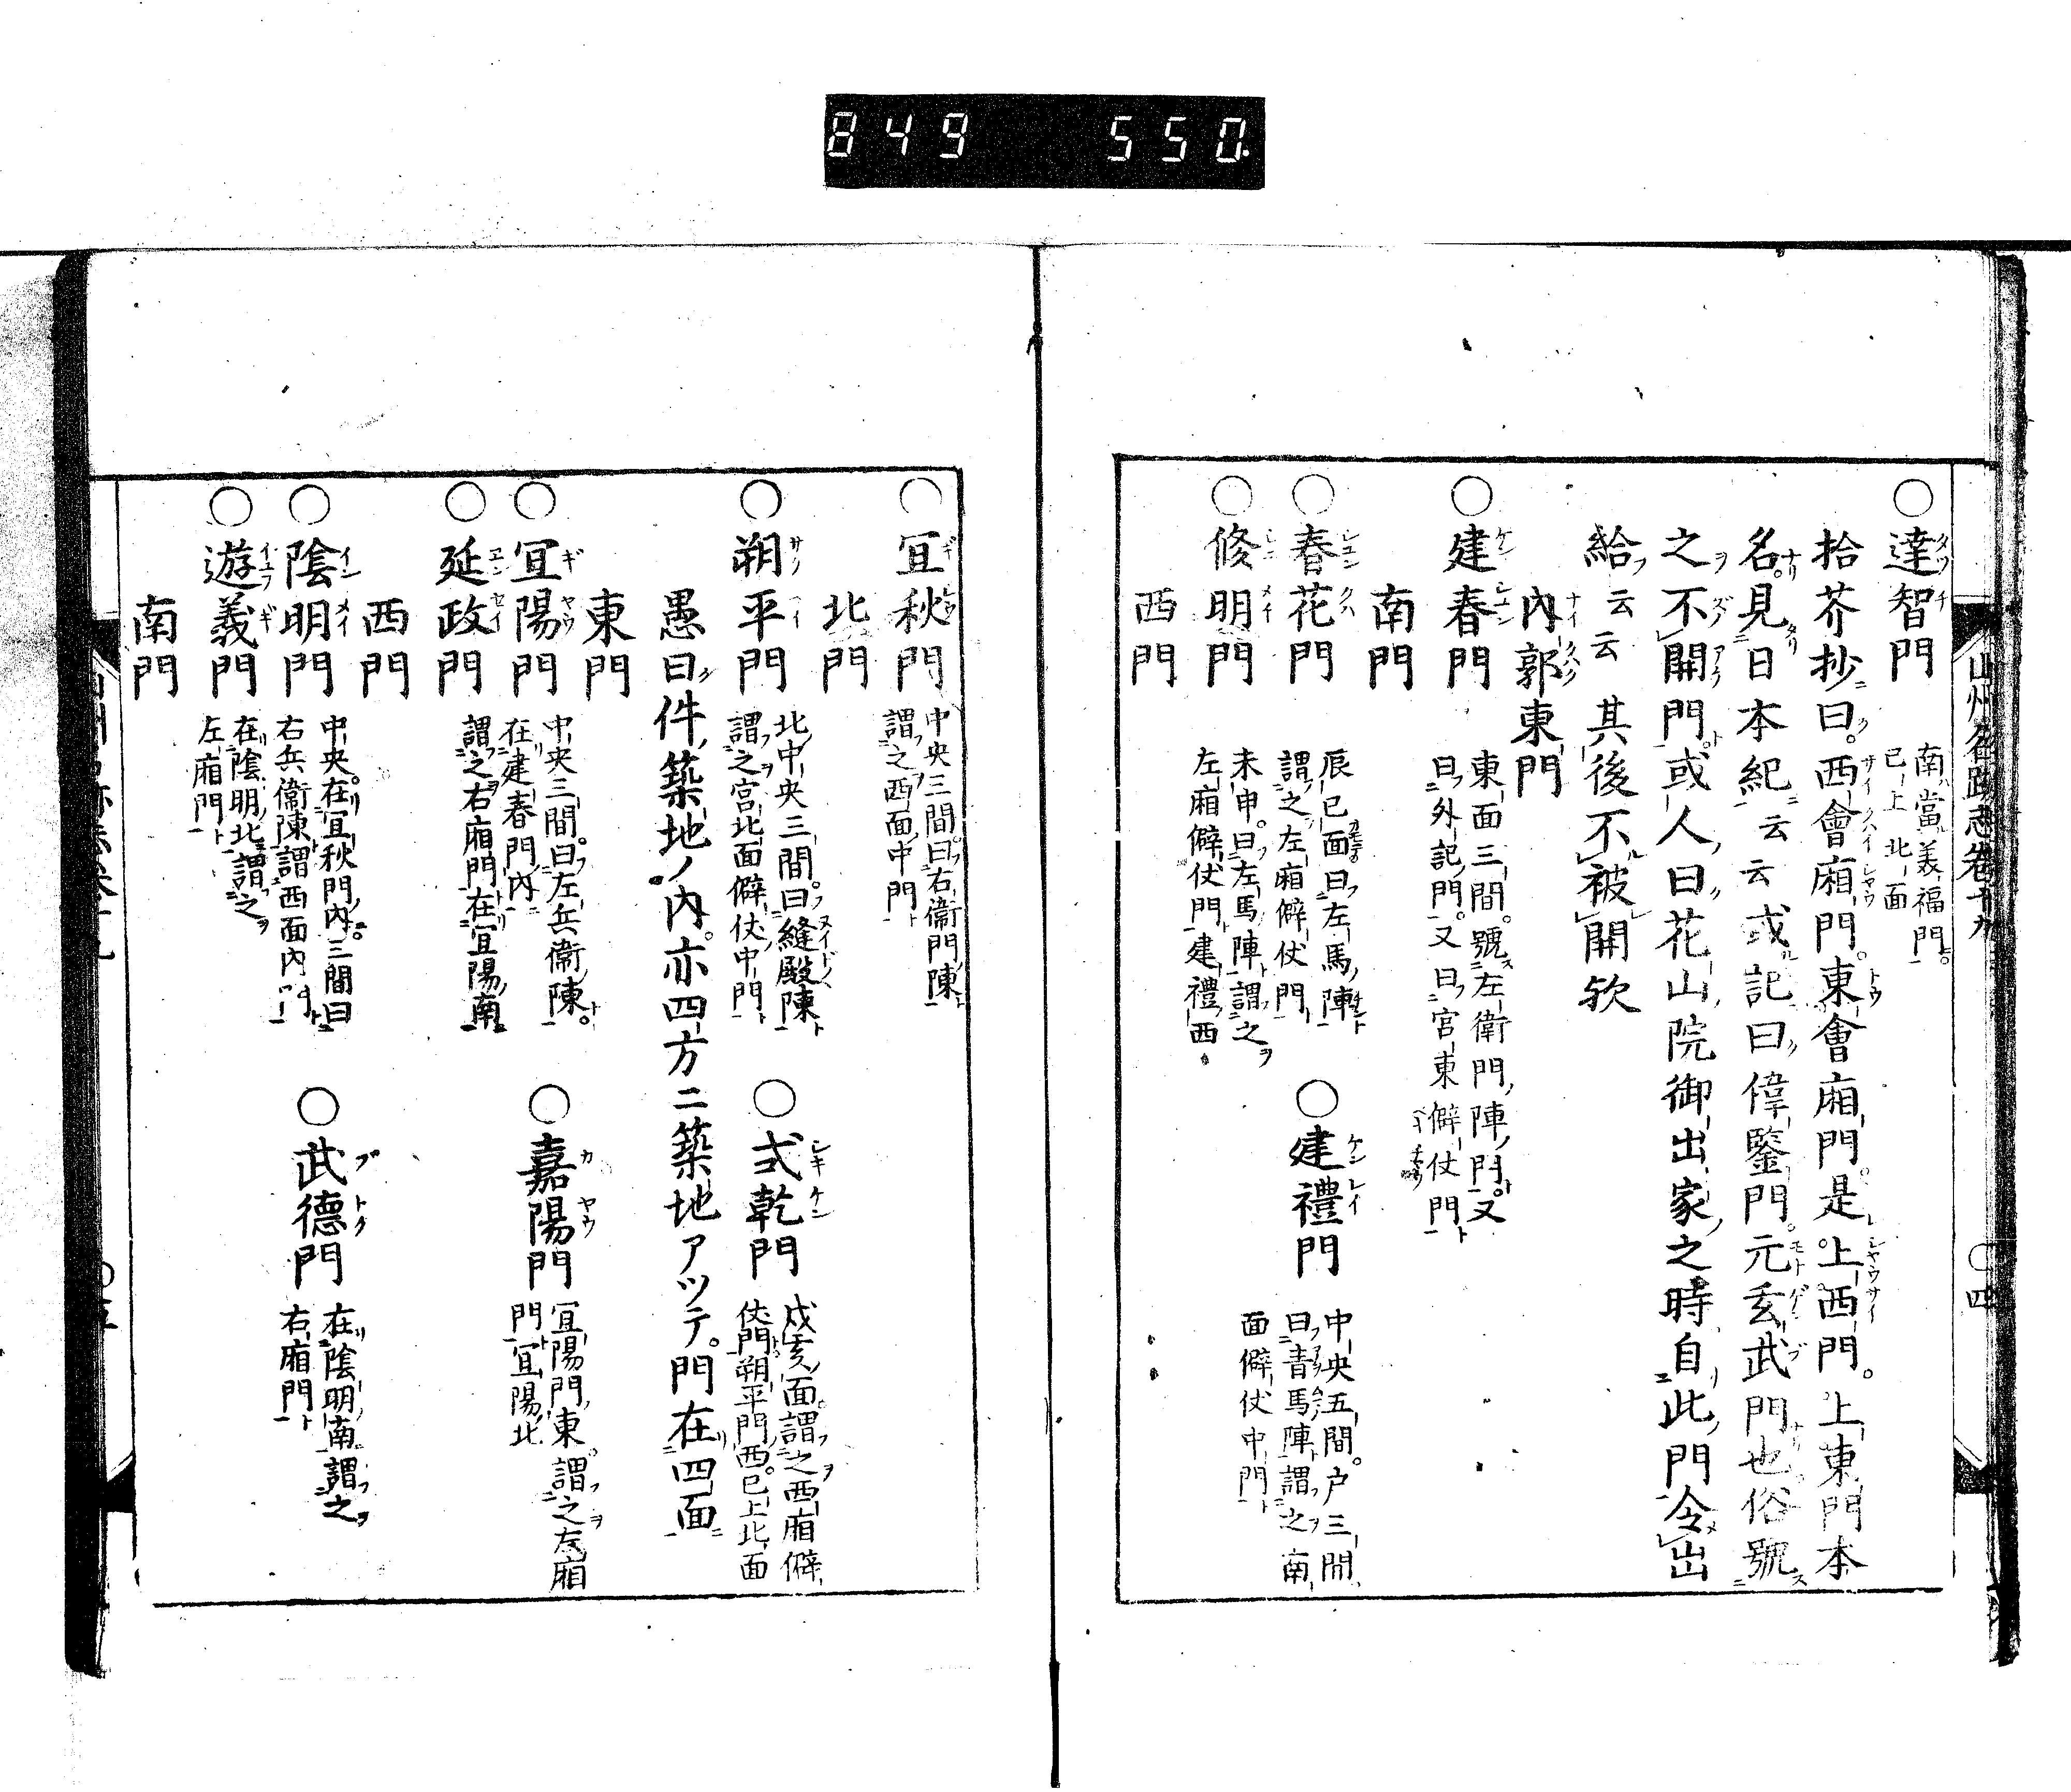 849 550
山州名跡志卷十九
○四
○達智門 南當義福門。
已上北面
拾芥抄曰。西會廂門。東會廂門。是上西門。上東門本
名。見日本紀云云或記曰偉鑒門。元玄武門也俗號
之不開門。或人曰花山院御出家之時自此門令出
給云云 其後不被開欤
內郭東門
○建春門 東面三間。號左衛門陣門。又
曰外記門。又曰宮東僻仗門
南門
○春花門 辰巳面。曰左馬陣
謂之左廂僻仗門
○建禮門 中央五間。戸三間
曰青馬陣謂之南
面僻仗中門
○修明門 未申。曰左馬陣謂之
左廂僻仗門建禮西
西門
○宜秋門 中央三間。曰右衞門陳
謂之西面中門
北門
○朔平門 北中央三間。曰縫殿陳
謂之宮北面僻仗中門
○式乾門 戌亥面。謂之西廂僻
仗門朔平門西。已上北面
愚曰件築地ノ內。亦四方ニ築地アツテ。門在四面
東門
○宜陽門 中央三間。曰左兵衞陳。
在建春門內
○嘉陽門 宜陽門東。謂之左廂
門宜陽北
○延政門 謂之右廂門在宜陽南
西門
○陰明門 中央。在宜秋門內。三間曰
右兵衞陳謂西面內門
○武德門 在陰明南謂之
右廂門
○遊義門 在陰明北謂之
左廂門
南門